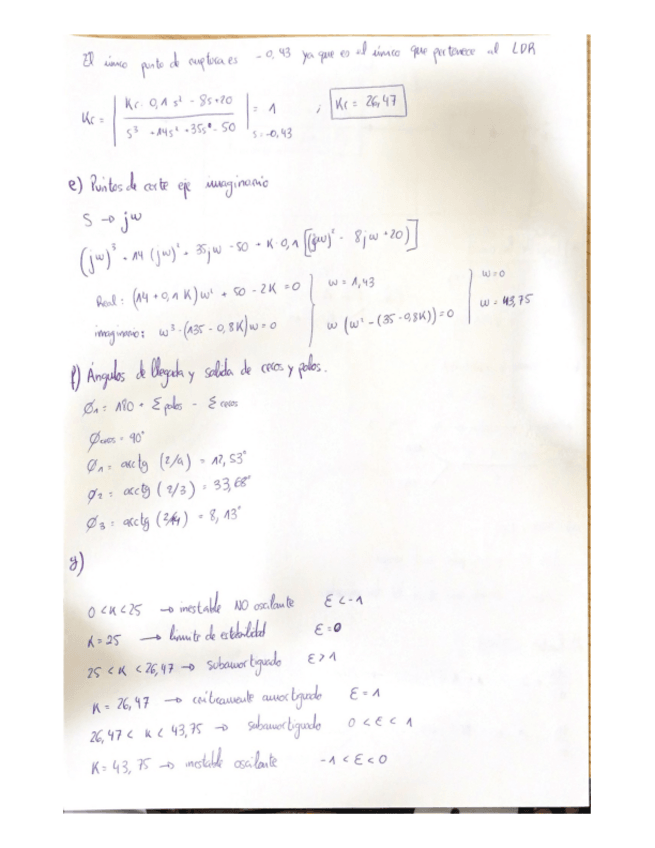 El único punto de ruptura es -0,43 ya que es el único que pertenece al LDR
Kc = | Kc · 0,1 s² - 8s + 20 / s³ + 14s² + 35s - 50 | s=-0,43 = 1 ; Kc = 26,47
e) Puntos de corte eje imaginario
S → jw
(jw)³ + 14 (jw)² + 35jw - 50 + K · 0,1 [(jw)² - 8jw + 20)]
Real: (14 + 0,1K)w² + 50 - 2K = 0 } w = 1,43 } w = 0
imaginario: w³ - (135 - 0,8K)w = 0 } w (w² - (35 - 0,8K)) = 0 } w = 43,75
f) Ángulos de llegada y salida de ceros y polos.
Ø₁ = 180 + Σ polos - Σ ceros
Øceros = 90°
Ø₁ = arctg (2/9) = 12,53°
Ø₂ = arctg (2/3) = 33,68°
Ø₃ = arctg (2/14) = 8,13°
g)
0 < K < 25 → inestable NO oscilante ξ < -1
K = 25 → limite de estabilidad ξ = 0
25 < K < 26,47 → subamortiguado ξ > 1
K = 26,47 → criticamente amortiguado ξ = 1
26,47 < K < 43,75 → subamortiguado 0 < ξ < 1
K = 43,75 → inestable oscilante -1 < ξ < 0